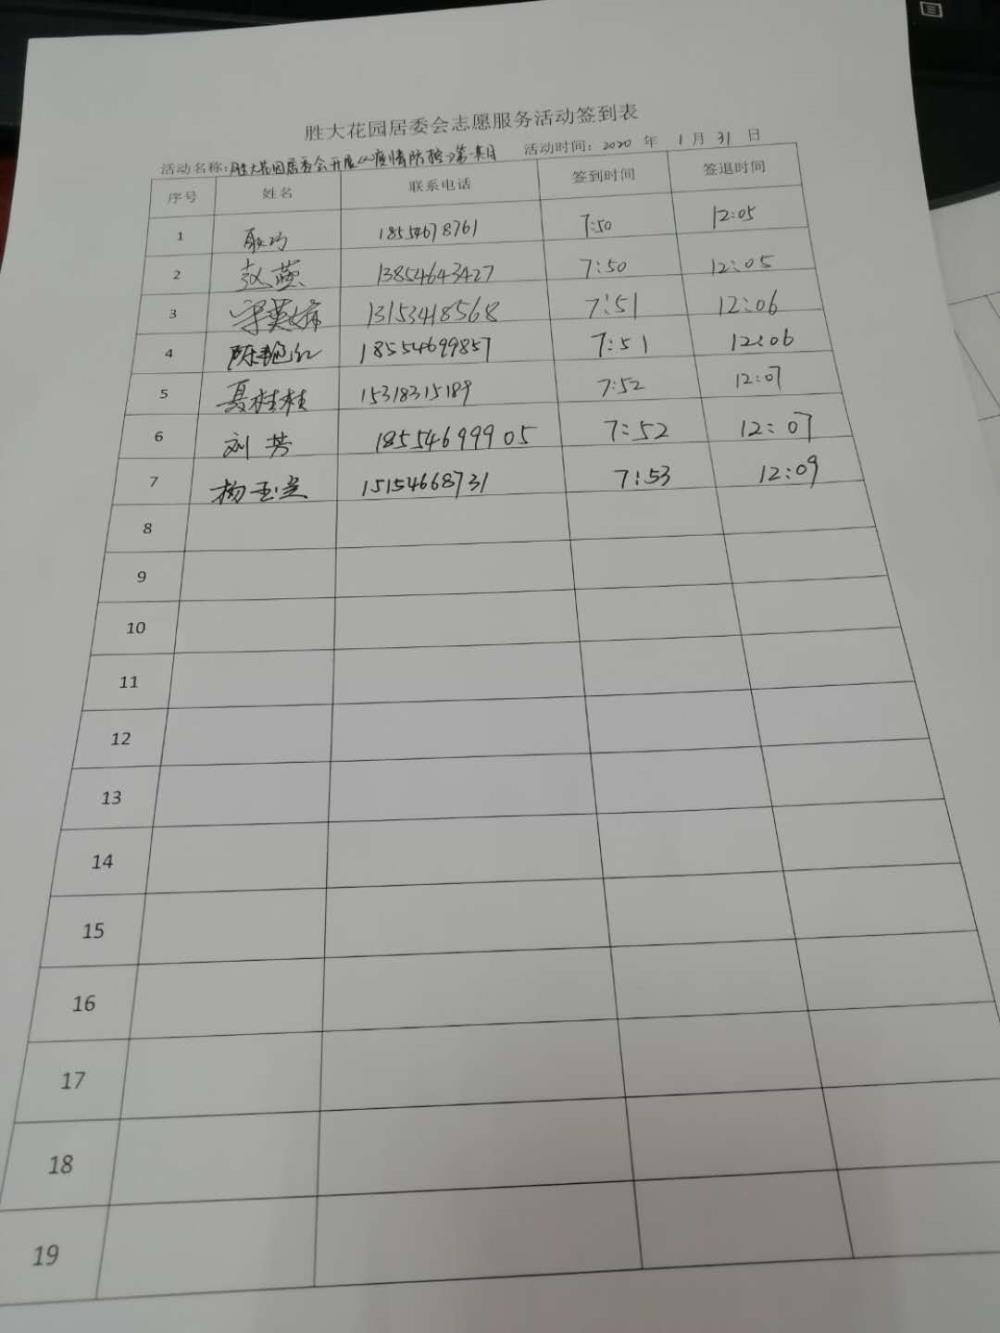 胜大花园居委会志愿服务活动签到表
活动名称:胜大花园居委会开展《疫情防控》第 期 活动时间: 2020 年 1 月 31 日
序号 姓名 联系电话 签到时间 签退时间
1 18554678761 7:50 12:05
2 赵燕 13854643427 7:50 12:05
3 13153418568 7:51 12:06
4 陈艳红 18554699857 7:51 12:06
5 聂桂桂 15318315189 7:52 12:07
6 刘芳 18554699905 7:52 12:07
7 杨玉兰 15154668731 7:53 12:09
8
9
10
11
12
13
14
15
16
17
18
19